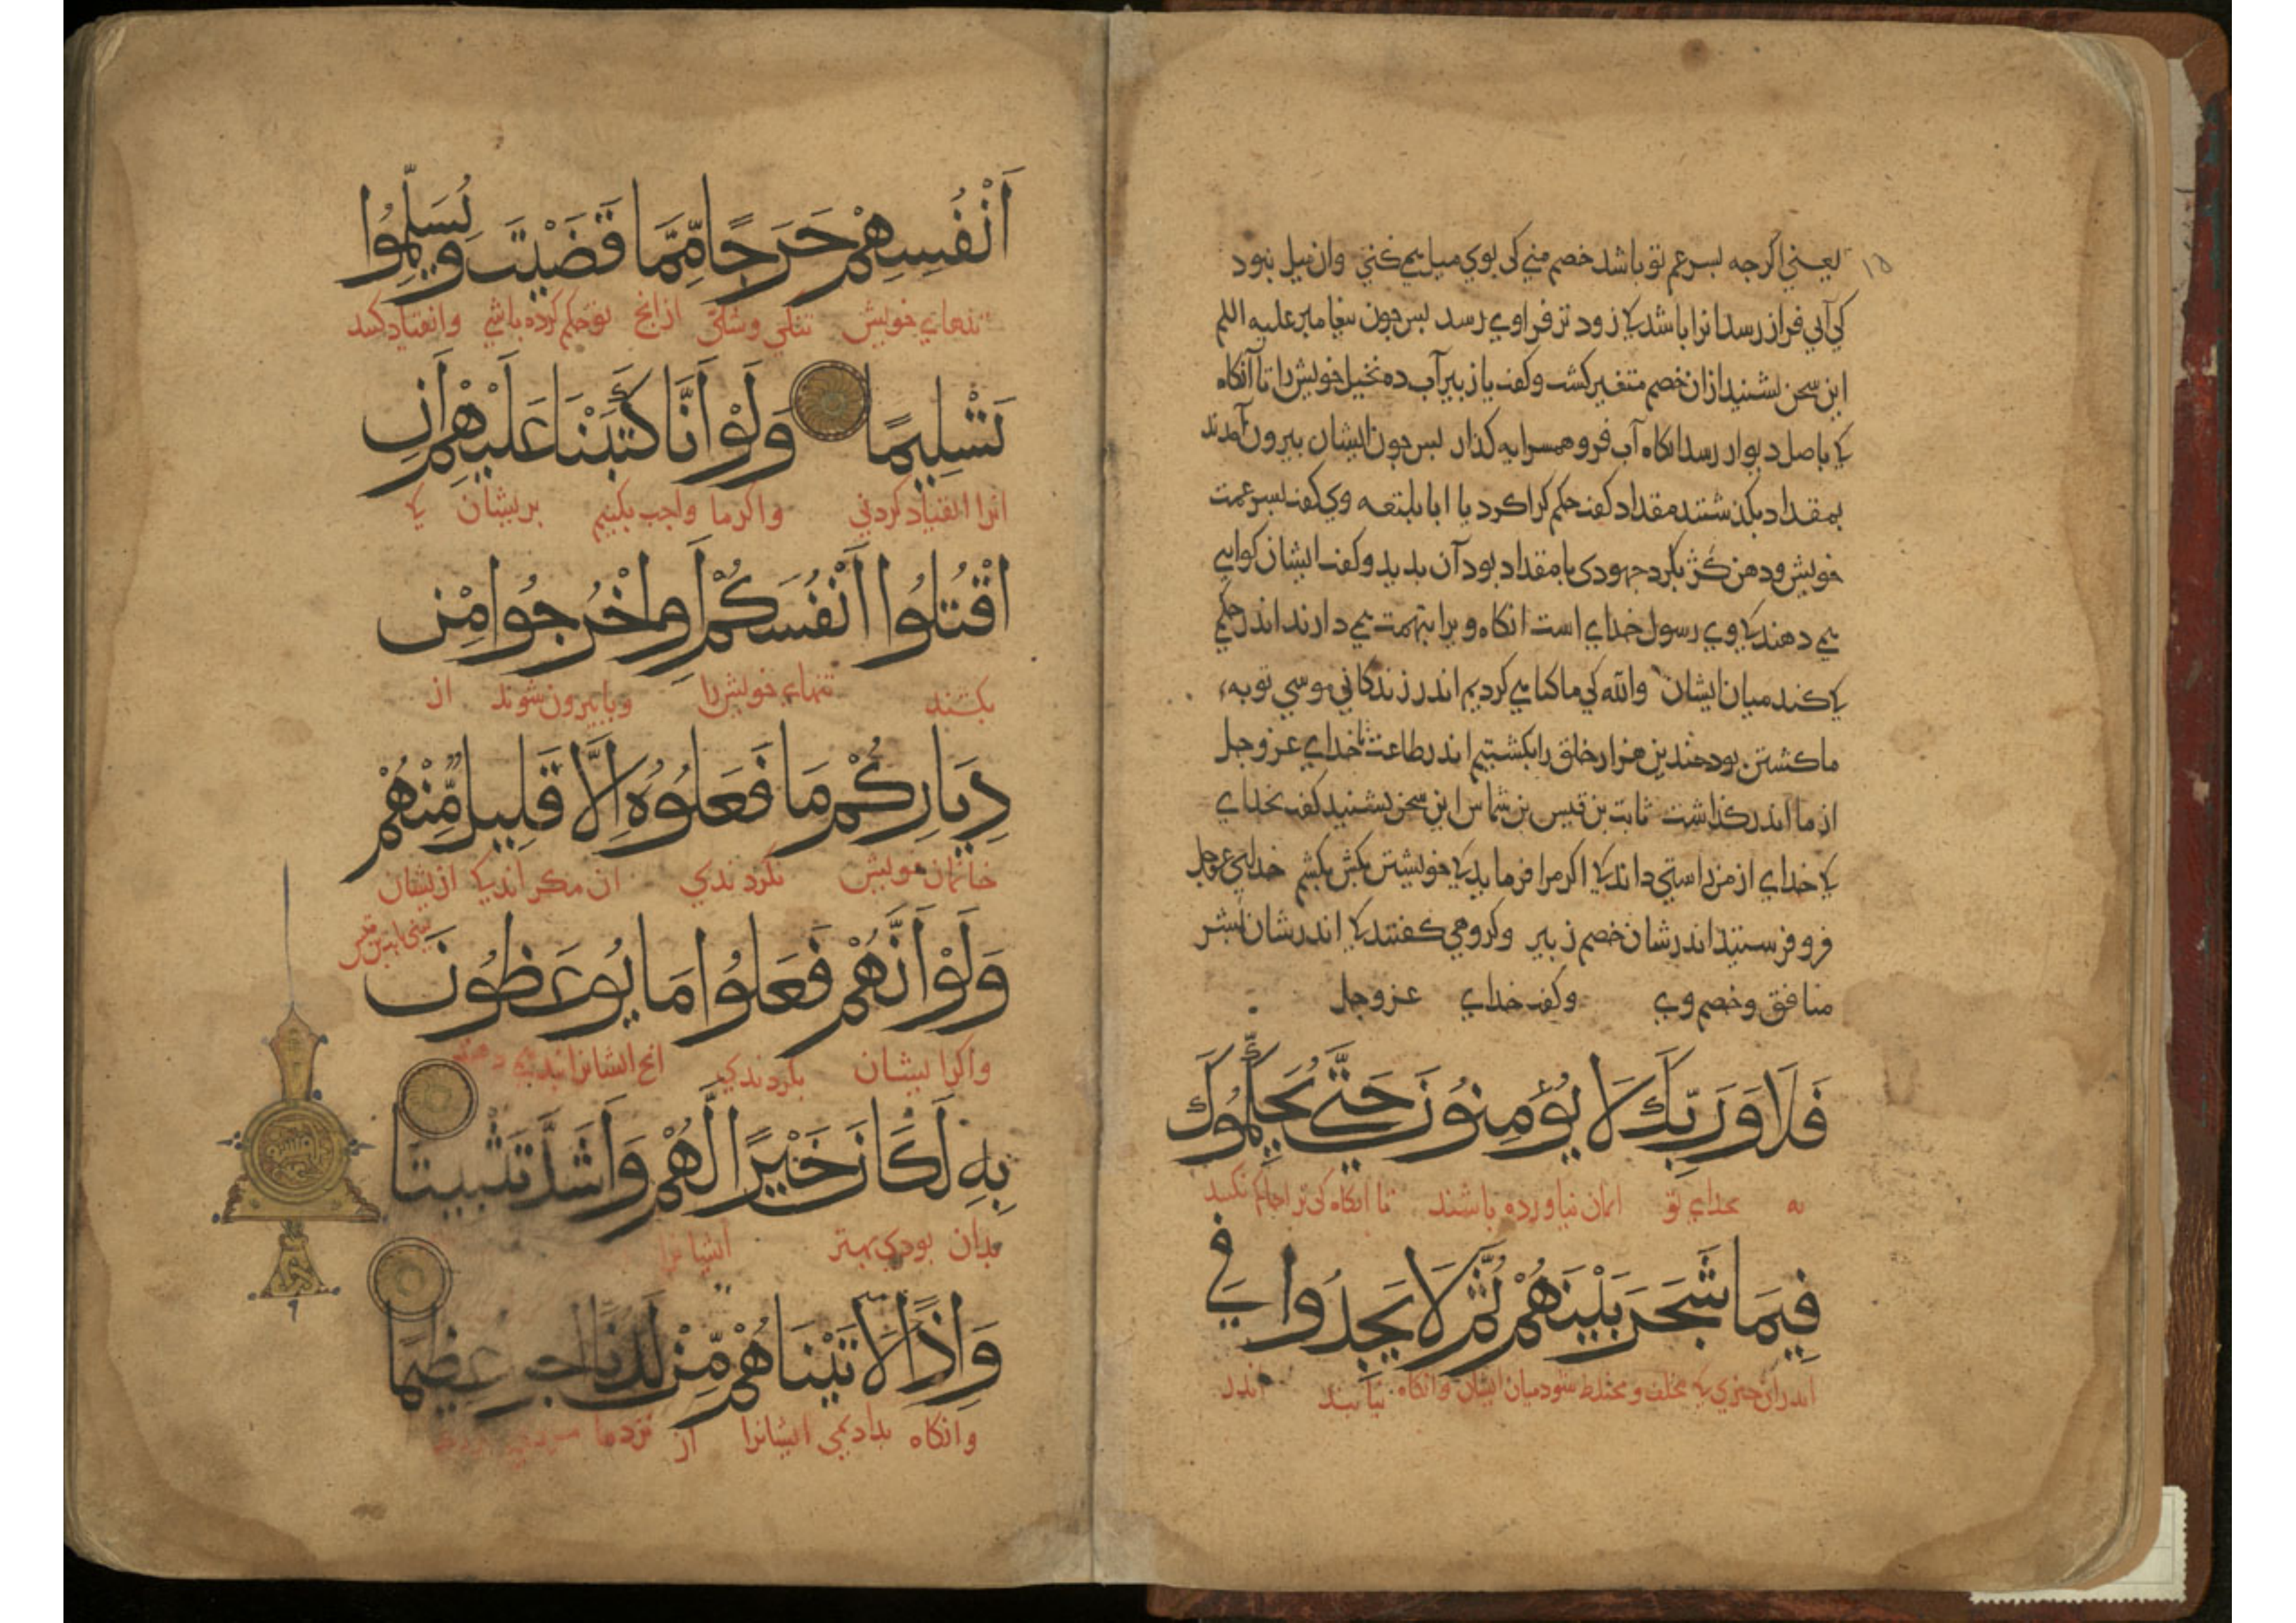 یعنی اکرجه بسر عم تو باشد خصم منی کی بوی میل می کنی وان میل بنود
کی آبی فراز رسد انرا باشد کی زود تر فراوی رسد بس جون بیغامبر علیه السلم
این سخن بشنید ازان خصم متغیر کشت وکفت یا زبیر آب ده نخیل خویش را تا آنکاه
کی باصل دیوار رسد انکاه آب فرو همسرایه کذار بس جون ایشان بیرون آمدند
بمقداد بکذشتند مقداد کفت حکم کرا کرد یا ابا بلتعه وی کفت بسر عمت
خویش ودهن کژ بکرد جهودی با مقداد بود آن بدید وکفت ایشان کواهی
می دهند کی وی رسول خدای است انکاه ویرا بتهمت می دارند اندر حکمی
کی کند میان ایشان والله کی ما کناهی کردیم اندر زندکانی موسی توبهء
ما کشتن بود جندین هزار خلق را بکشتیم اندر طاعت خدای عز وجل
از ما اندر کذاشت ثابت بن قیس بن شماس این سخن بشنید کفت بخدای
کی خدای از من راستی داند کی اکر مرا فرماید کی خویشتن بکش بکشم خدای عز وجل
فرو فرستیذ اندر شان خصم زبیر وکروهی کفتند کی اندر شان بشر
منافق وخصم وی وکفت خدای عز وجل
فَلَا وَرَبِّكَ لَا يُؤْمِنُونَ حَتَّىٰ يُحَكِّمُوكَ
نه بخدای تو ایمان نیاورده باشند تا انکاه کی ترا حاکم نکنند
فِيمَا شَجَرَ بَيْنَهُمْ ثُمَّ لَا يَجِدُوا فِي
اندران جیزی کی مختلف ومختلط شود میان ایشان وانکاه نیابند اندر
أَنْفُسِهِمْ حَرَجًا مِّمَّا قَضَيْتَ وَيُسَلِّمُوا
تنهای خویش تنکی وشکی از انج تو حکم کرده باشی وانقیاد کنند
تَسْلِيمًا وَلَوْ أَنَّا كَتَبْنَا عَلَيْهِمْ أَنِ
انرا انقیاد کردنی واکر ما واجب بکنیم بریشان کی
اقْتُلُوا أَنْفُسَكُمْ أَوِ اخْرُجُوا مِنْ
بکشند تنهای خویش را ویا بیرون شوند از
دِيَارِكُمْ مَا فَعَلُوهُ إِلَّا قَلِيلٌ مِّنْهُمْ
خانمان خویش نکردندی ان مکر اندکی ازیشان
وَلَوْ أَنَّهُمْ فَعَلُوا مَا يُوعَظُونَ
واکر ایشان بکردندی انج ایشانرا بند می دهند
بِهِ لَكَانَ خَيْرًا لَّهُمْ وَأَشَدَّ تَثْبِيتًا
بدان بودی بهتر ایشانرا
وَإِذًا لَّآتَيْنَاهُمْ مِّنْ لَّدُنَّا أَجْرًا عَظِيمًا
وانکاه بدادیمی ایشانرا از نزد ما مزدی